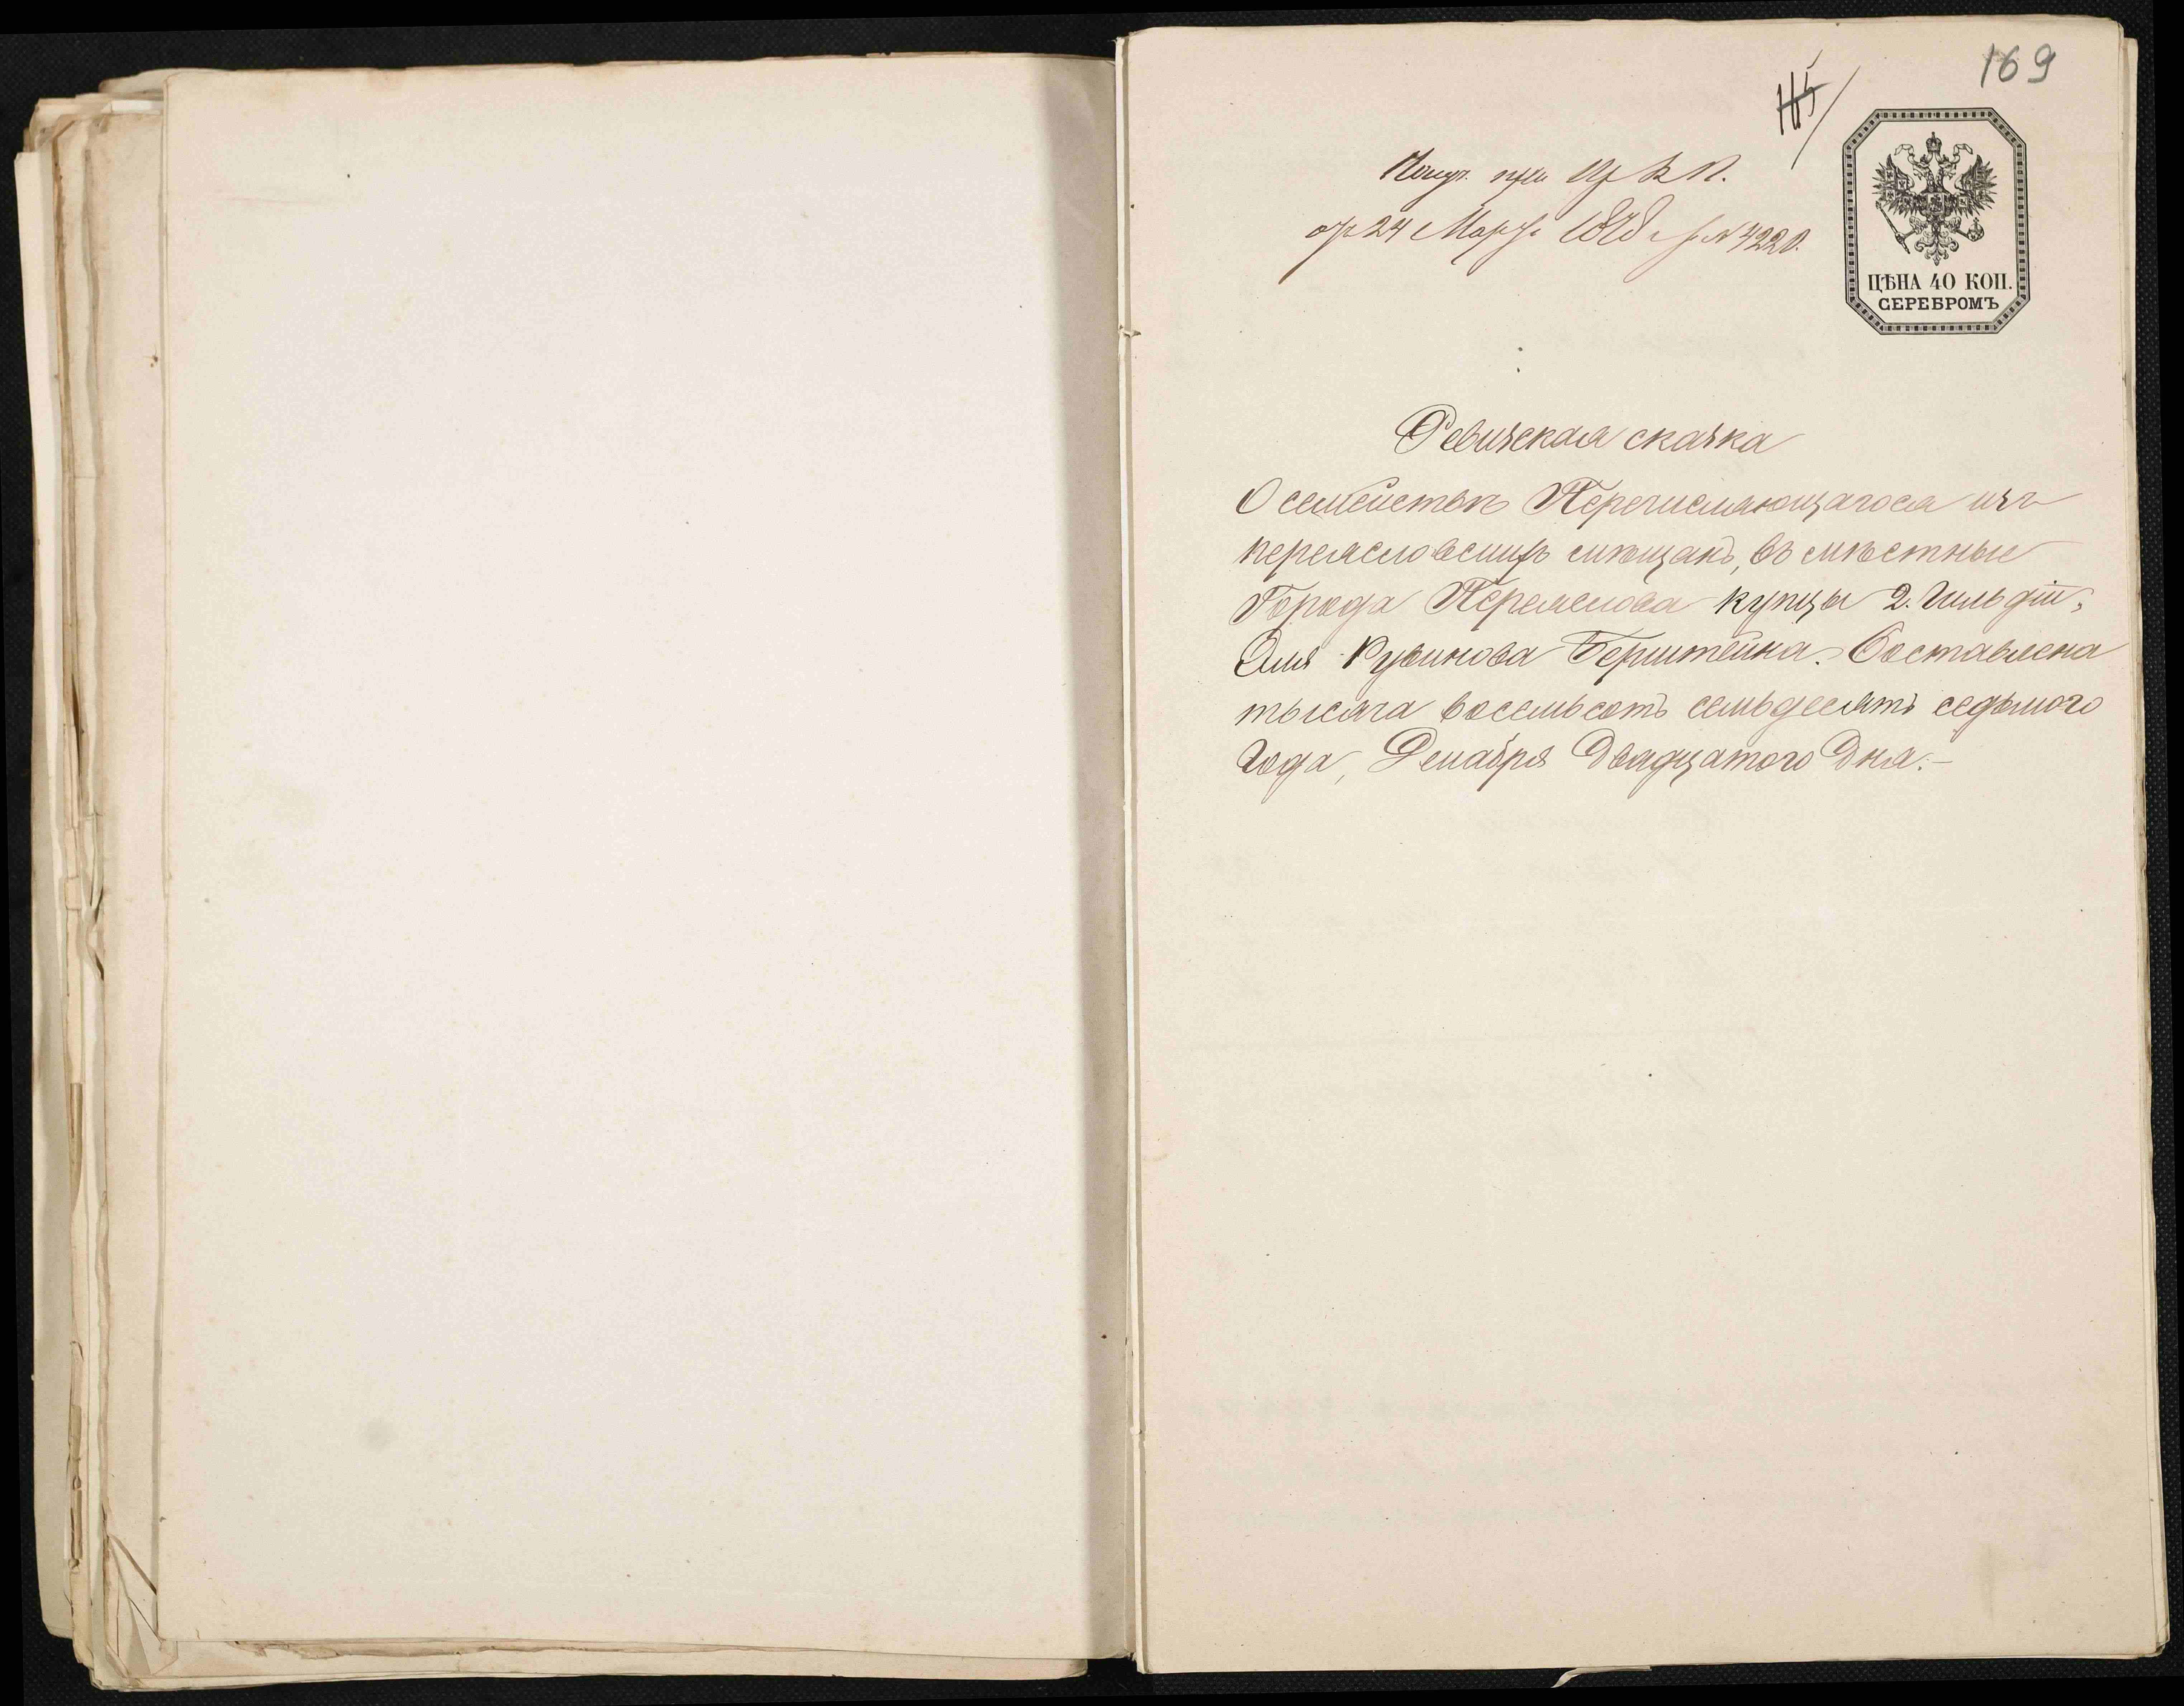 169
165
Получ. при Ук. К. П.
отъ 24 Марта 1878 г. за № 4220.
ЦѢНА 40 КОП.
СЕРЕБРОМЪ
Ревизская сказка
О семействѣ Перечисляющагося изъ
переясловскихъ мѣщанъ, въ мѣстные
Города Переяслова купцы 2. Гильдіи,
Эля Рувинова Берштейна. Составлена
тысяча восемьсотъ семьдесятъ седьмого
Года, Декабря Двадцатого Дня.-